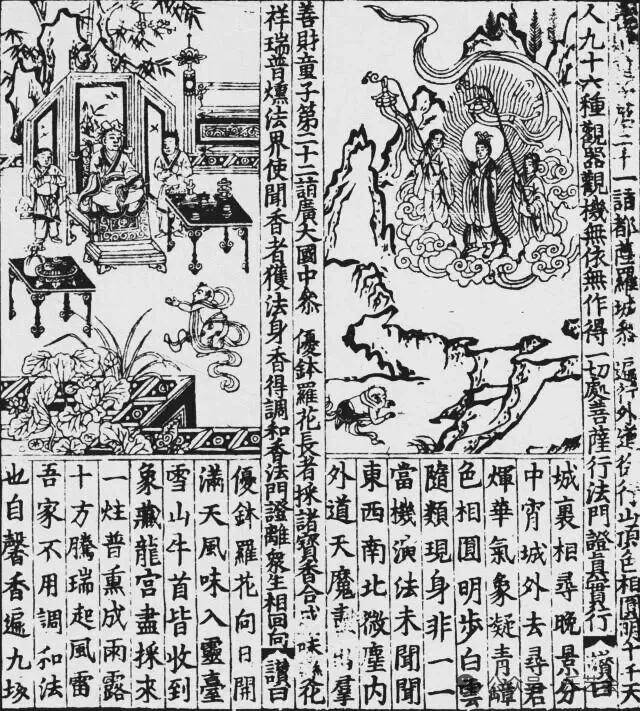 二十一詣都薩羅城叅 遍行外道 行山頂色相圓明十千天
人九十六種觀器觀機無依無作得一切處菩薩行法門證真實行 讚曰
城裏相尋晚景分
中宵城外去尋君
輝華氣象凝青嶂
色相圓明步白雲
隨類現身非一一
當機演法未聞聞
東西南北微塵內
外道天魔 羣
善財童子第二十二詣廣大國中叅 優鉢羅花長者採諸寶香合 味 花
祥瑞普熏法界使聞香者獲法身香得調和香法門證離衆生相回向 讚曰
優鉢羅花向日開
滿天風味入靈臺
雪山牛首皆收到
象藏龍宮盡採來
一炷普熏成雨露
十方騰瑞起風雷
吾家不用調和法
也自馨香遍九垓